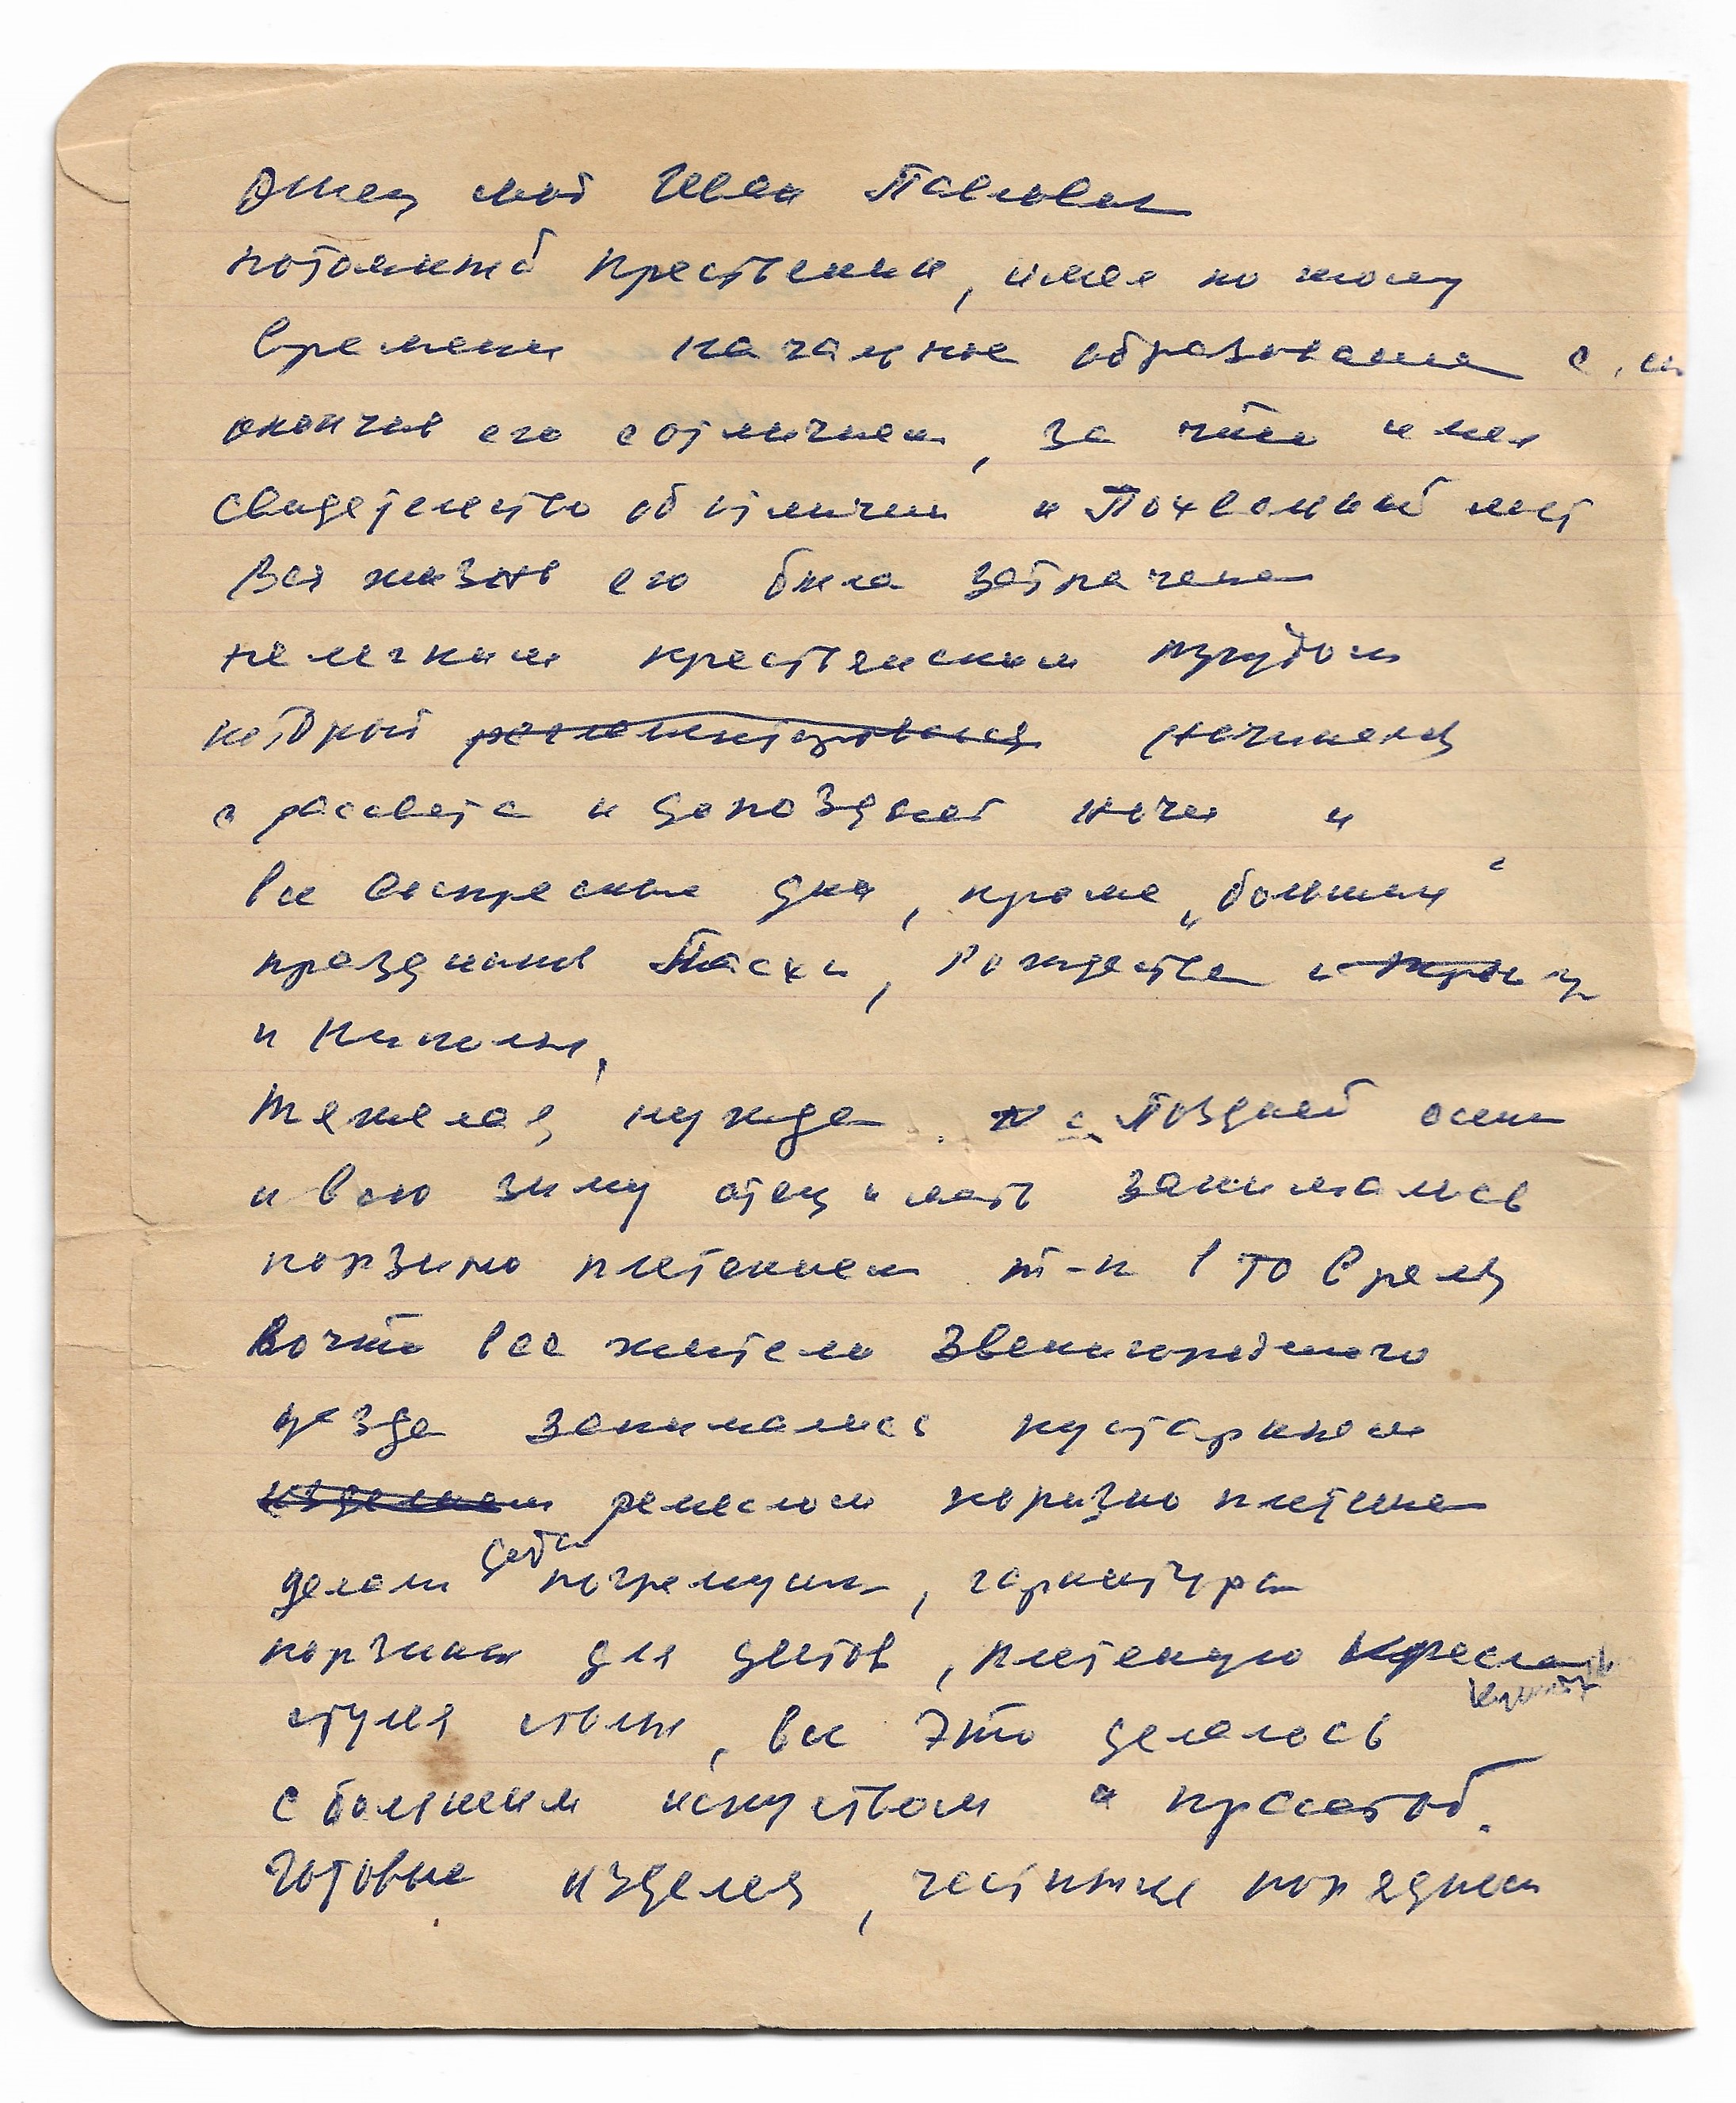 Отец мой Иван Павлович
потомкий крестьянин, имел по тому
времени начальное образование с.ш
окончив его сотличием, за что имел
свидетельство об отличии и Похвальный лист
Вся жизнь его была затрачена
нелегким крестьянским трудом
который регламентировался начинался
с рассвета и допоздней ночи и
все воскресные дни, кроме „больших“
праздников Пасхи, Рождества и троиц
и Николы,
Тяжелая нужда. с Поздней осени
и всю зиму отец и мать занимались
корзино плетением т-к в то время
почти все жители Звенигородского
уезда занимались кустарным
изделием ремеслом корзино плетение
делали детс погремушки, гарнитура
корзинки для цветов, плетеную кресла
стулья столы, все это делалось
с большим искуством и красотой.
Готовые изделия, честным порядком